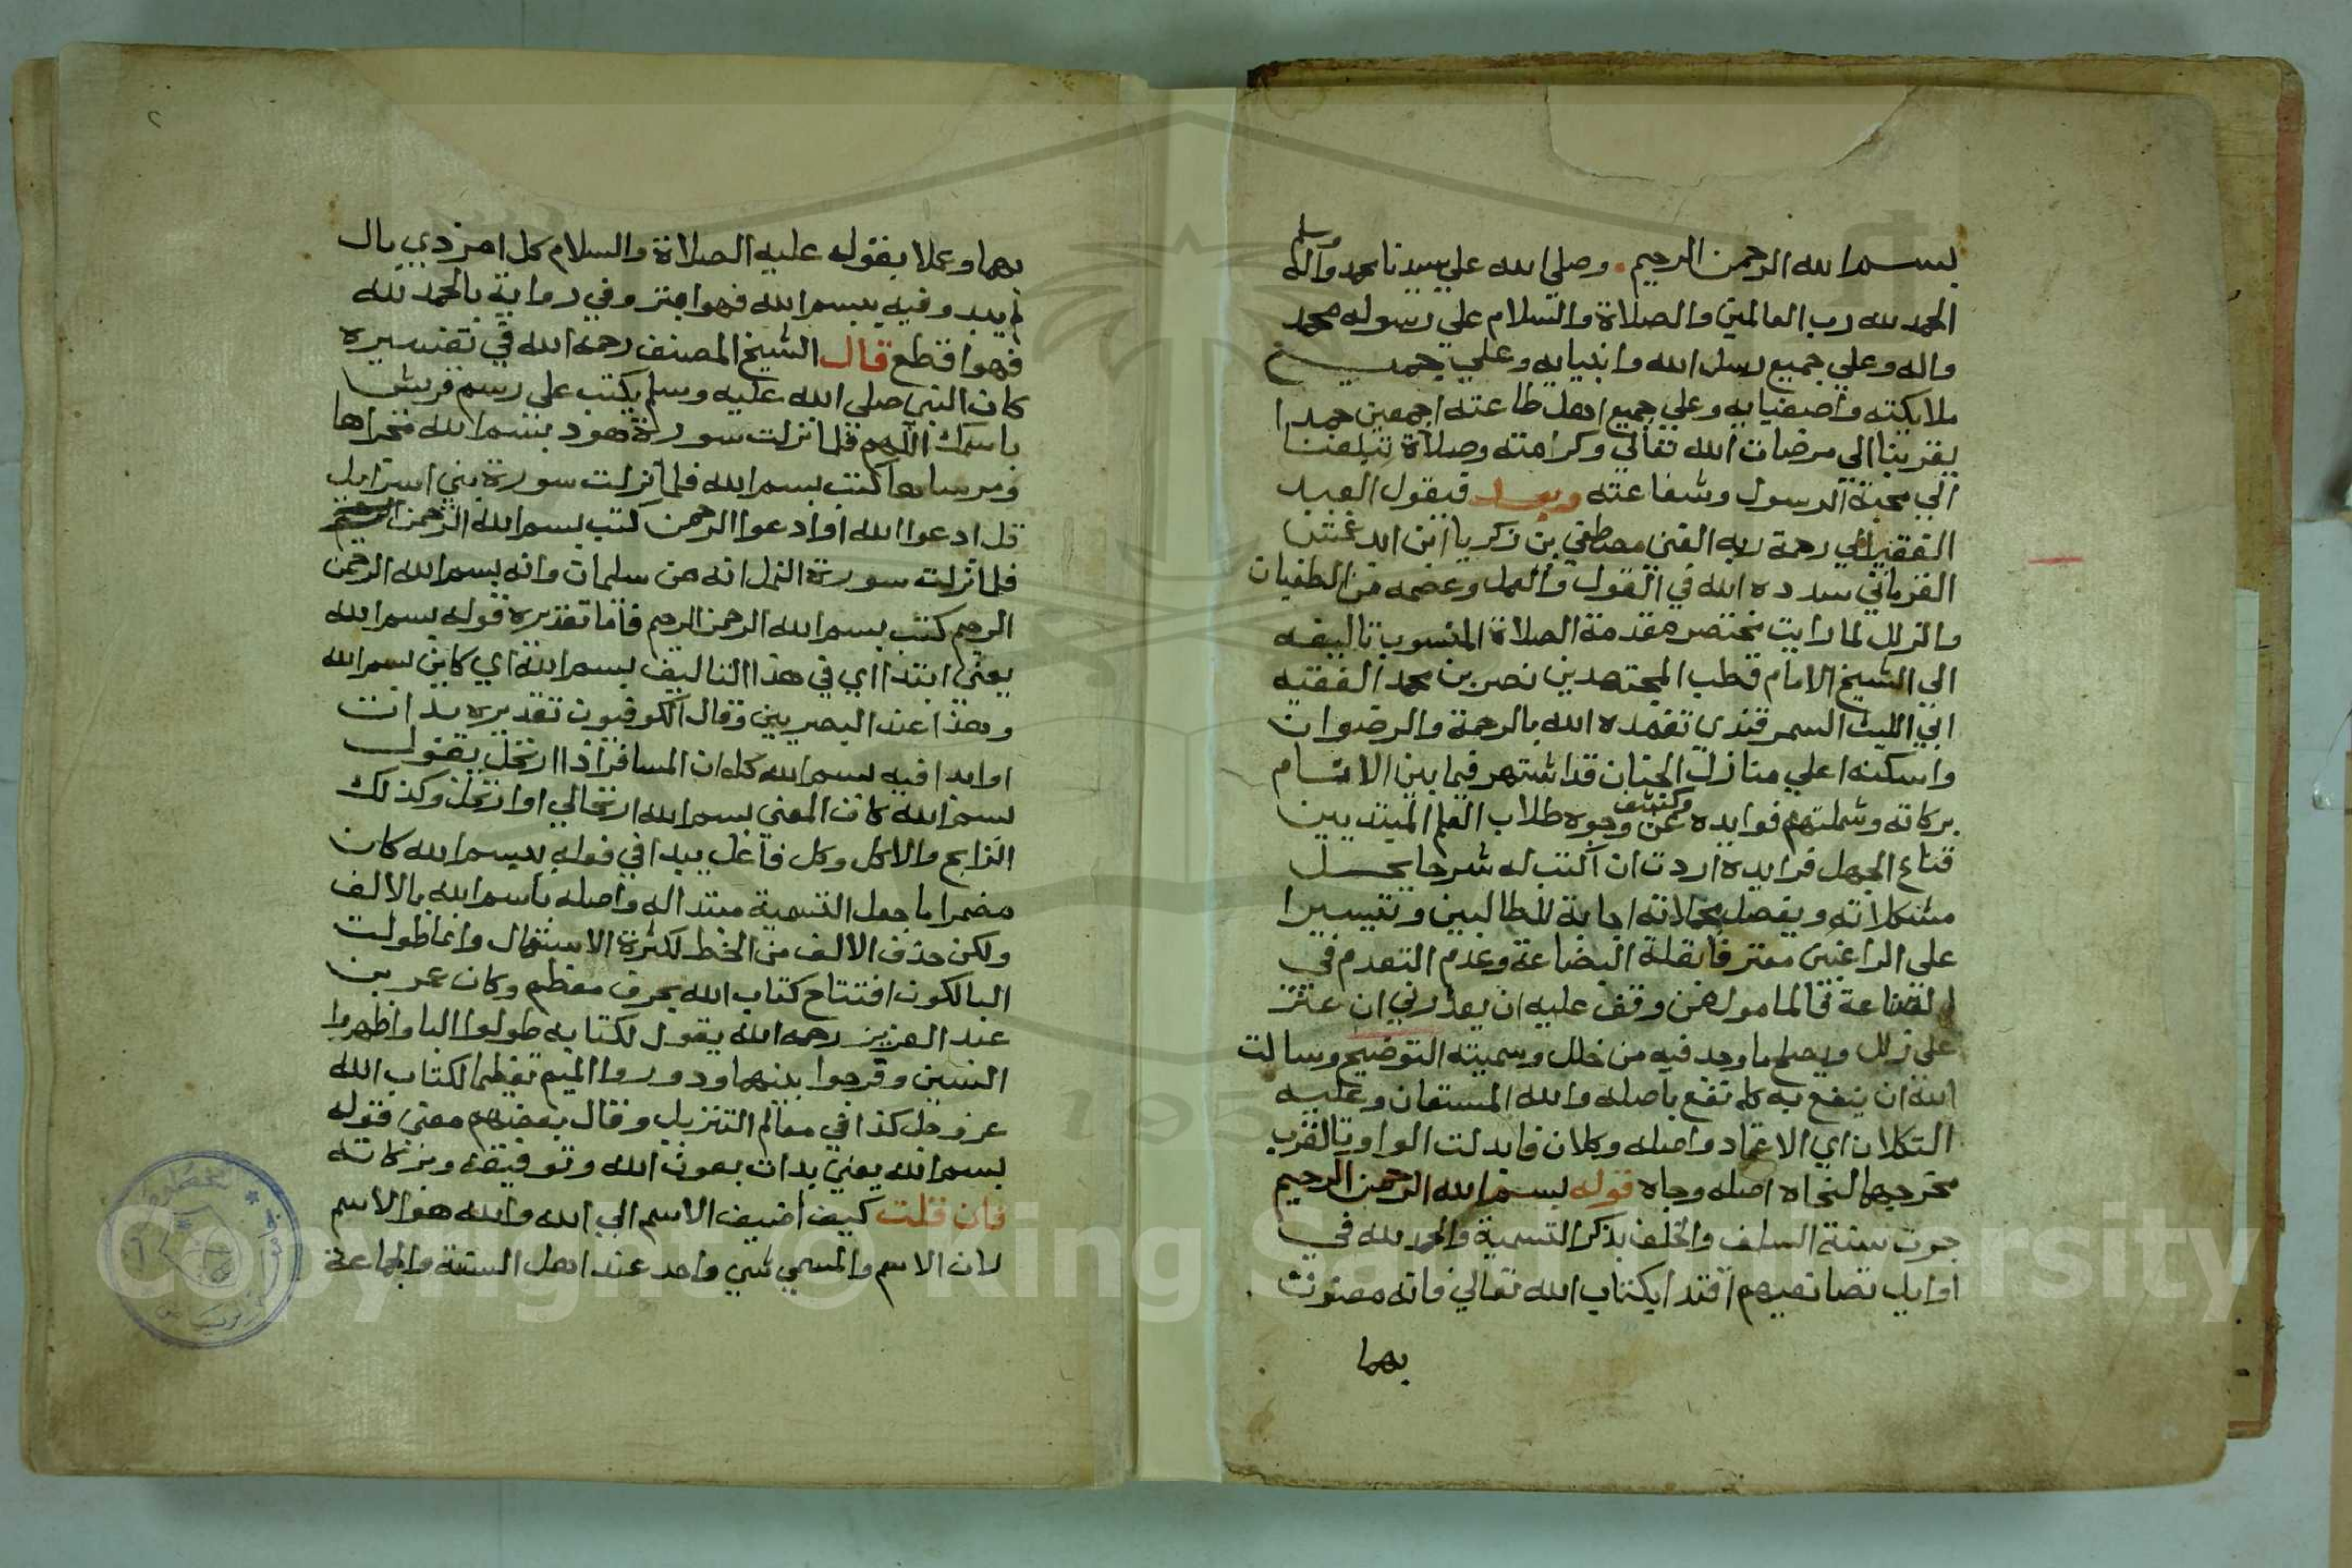 بسم الله الرحمن الرحيم وصلي الله علي سيدنا محمد وآله وسلم
الحمد لله رب العالمين والصلاة والسلام علي رسوله محمد
واله وعلي جميع رسل الله وانبيايه وعلي جميع
ملايكته واصفيايه وعلي جميع اهل طاعته اجمعين حمدا
يقربنا الي مرضات الله تعالي وكرامته وصلاة تبلغنا
الي محبة الرسول وشفاعته وبعد فيقول العبد
الفقير الي رحمة ربه الغني مصطفي بن زكريا ابن ايدغمش
القرماني سدده الله في القول والعمل وعصمه من الطغيان
والزلل لما رايت مختصر مقدمة الصلاة المنسوب تاليفه
الي الشيخ الامام قطب المجتهدين نصر بن محمد الفقيه
ابي الليث السمرقندي تغمده الله بالرحمة والرضوان
واسكنه اعلي منازل الجنان قد اشتهر فيما بين الانام
بركاته وشملتهم فوايده وكشف عن وجوه طلاب العلم المبتديين
قناع الجهل فرايده اردت ان اكتب له شرحا يحل
مشكلاته ويفصل مجملاته اجابة للطالبين وتيسيرا
علي الراغبين معترفا بقلة البضاعة وعدم التقدم في
الصناعة فالمامول ممن وقف عليه ان يعذرني ان عثر
علي زلل ويصلح ما وجد فيه من خلل وسميته التوضيح وسالت
الله ان ينفع به كما نفع باصله والله المستعان وعليه
التكلان اي الاعتماد واصله وكلان فابدلت الواو تا لقرب
مخرجهما كتجاه اصله وجاه قوله بسم الله الرحمن الرحيم
جرت سنة السلف والخلف بذكر التسمية والحمد لله في
اوايل تصانيفهم اقتدا بكتاب الله تعالي فانه معنون
بهما
بهما وعملا بقوله عليه الصلاة والسلام كل امر ذي بال
لم يبدو فيه ببسم الله فهو ابتر وفي رواية بالحمد لله
فهو اقطع قال الشيخ المصنف رحمه الله في تفسيره
كان النبي صلي الله عليه وسلم يكتب علي رسم قريش
باسمك اللهم فلما نزلت سورة هود بسم الله مجراها
ومرساها كتب بسم الله فلما نزلت سورة بني اسرايل
قل ادعوا الله او ادعوا الرحمن كتب بسم الله الرحمن
فلما نزلت سورة النمل انه من سليمان وانه بسم الله الرحمن
الرحيم كتب بسم الله الرحمن الرحيم فاما تقديره قوله بسم الله
يعني ابتدااي في هذا التاليف بسم الله اي كاين بسم الله
وهذا عند البصريين وقال الكوفيون تقديره بدات
او ابدا فيه بسم الله كما ان المسافر اذا ارتحل يقول
بسم الله كان المعني بسم الله ارتحالي او ارتحل وكذلك
الذابح والاكل وكل فاعل يبدا في فعله ببسم الله كان
مضمرا ما جعل التسمية مبتدا له واصله باسم الله بالالف
ولكن حذف الالف من الخط لكثرة الاستعمال وانما طولت
البا لكون افتتاح كتاب الله بحرف معظم وكان عمر بن
عبد العزيز رحمه الله يقول لكتابه طولوا البا واظهروا
السين وفرجوا بينهما ودوروا الميم تعظيما لكتاب الله
عز وجل كذا في معالم التنزيل وقال بعضهم معني قوله
بسم الله يعني بدات بعون الله وتوفيقه وبركاته
فان قلت كيف اضيف الاسم الي الله والله هو الاسم
لان الاسم والمسمي شي واحد عند اهل السنة والجماعة
Copyright © King Saud University